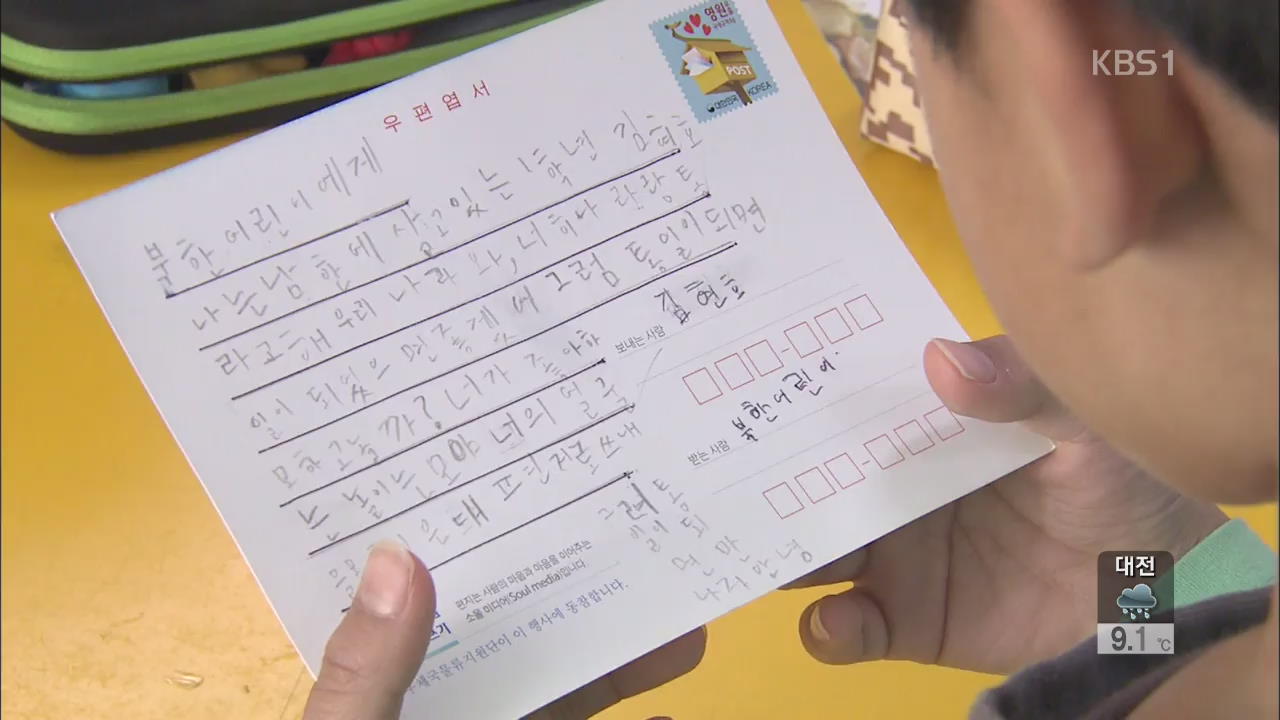 KBS1
영원
POST
대한민국 KOREA
우편엽서
북한어린이에게
나는남한에 살고있는 1학년 김현호
라고해 우리 나라 와, 너희나 란랑 통
일이 되있으 면 좋겠 어 그럼 통일이되면
모하고놀 까? 너가 좋아하
는 놀이는 모야 너의 얼굴
은대 편지를 쓰내
그럼 통
일이 되
면 만
나자 안녕
보내는 사람 김현호
받는 사람 북한어린이
편지는 사람의 마음과 마음을 이어주는
소울 미디어(Soul media)입니다
국물류지원단이 이 행사에 동참합니다.
대전
9.1 ℃